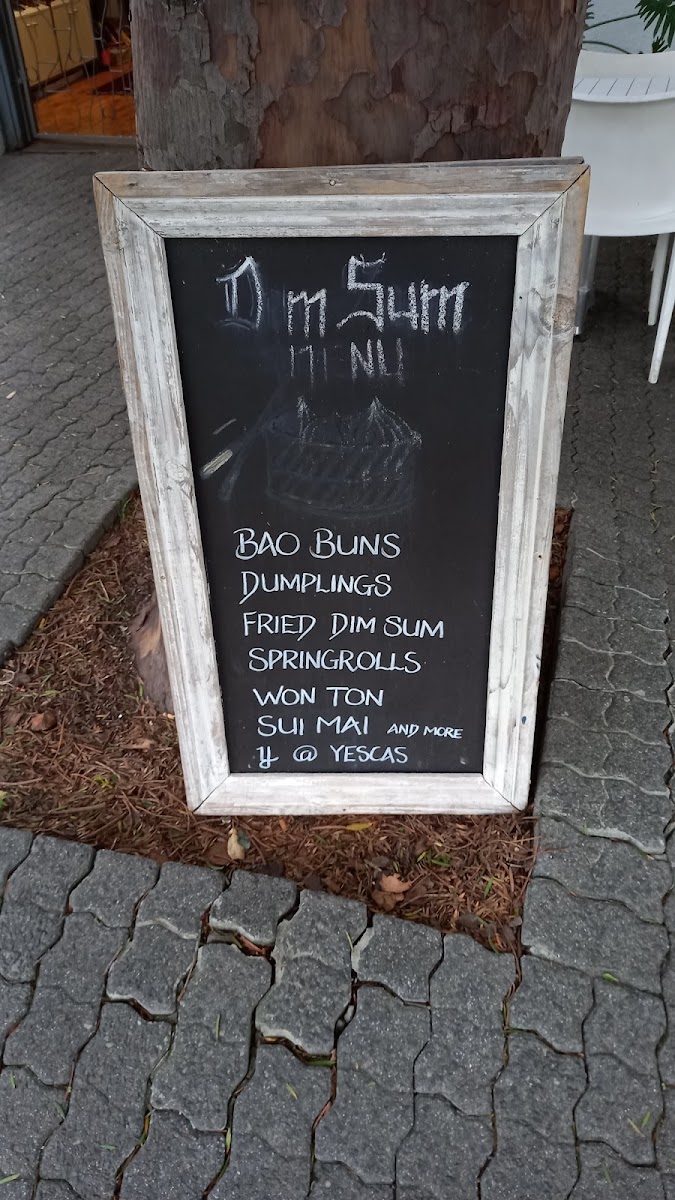 Dim Sum
MENU
BAO BUNS
DUMPLINGS
FRIED DIM SUM
SPRINGROLLS
WON TON
SUI MAI AND MORE
y @ YESCAS